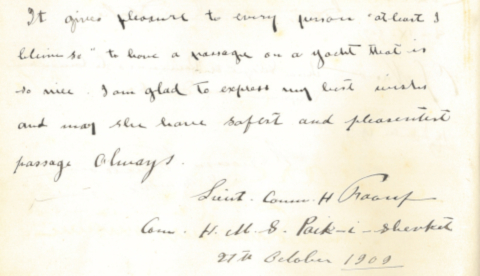 It gives pleasure to every person "at least I
believe so" to have a passage on a yacht that is
so nice. I am glad to express my best wishes
and may she have safest and pleasentest
passage always.
Lieut. Comm. H
Com. H. M. S. Paik-i-Shevket
27th October 1909